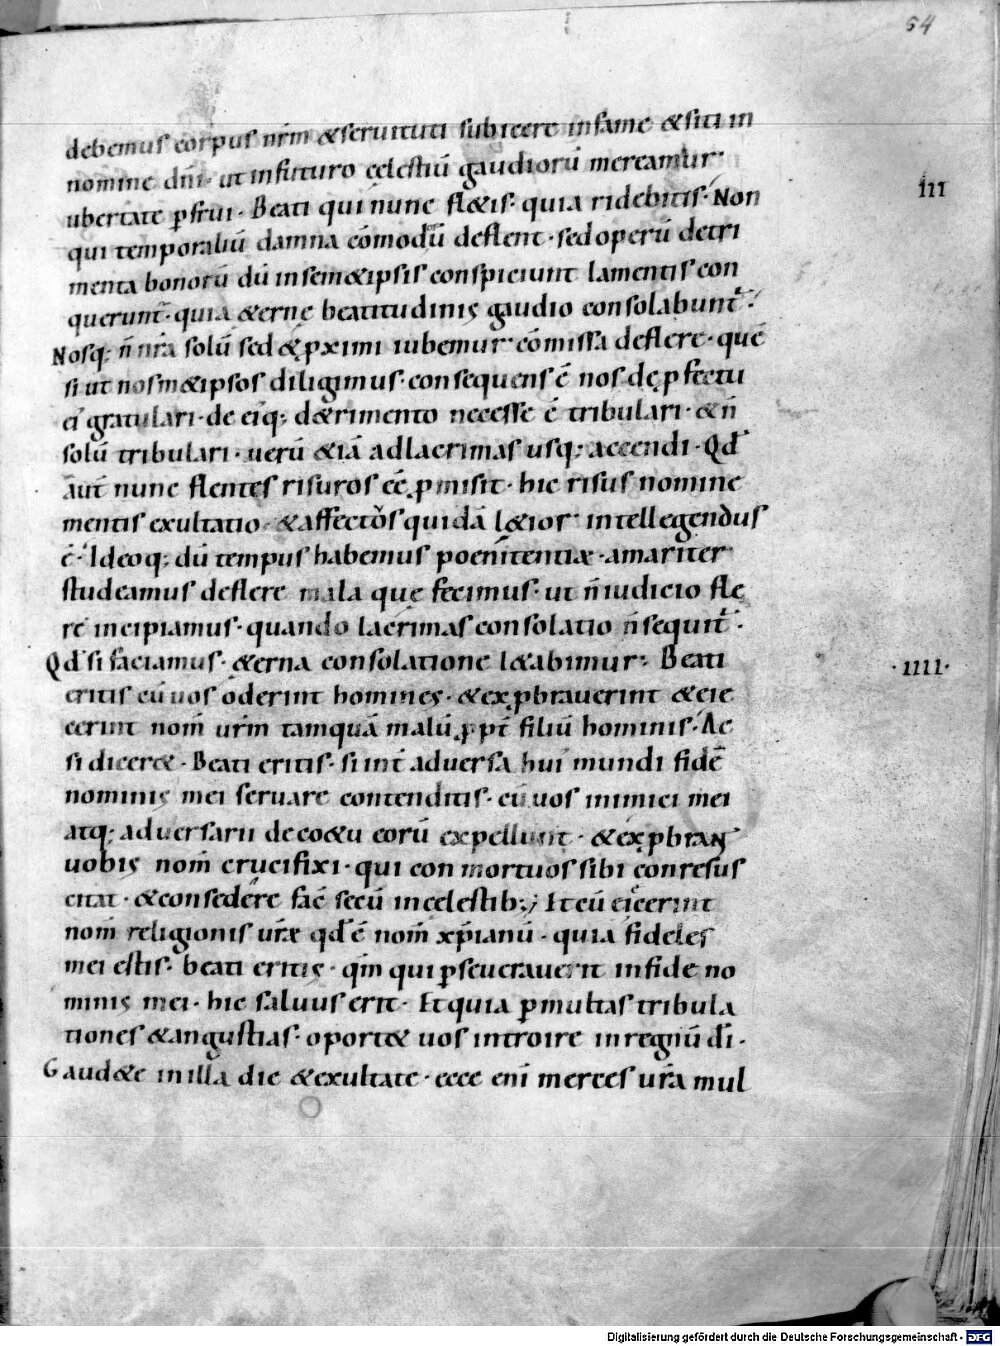 54
debemus corpus nr̄m & seruituti subicere in fame & siti in
nomine dn̄i · ut in futuro cęlestiū gaudiorū mereamur
III
ubertate ꝑfrui · Beati qui nunc fl&is · quia ridebitis · Non
qui temporaliū damna cōmodū deflent · sed operū detri
menta bonorū dū in sem&ipsis conspiciunt lamentis con
querunt̄ · quia &ernę beatitudinis gaudio consolabunt̄ ·
Nosq; n̄ nr̄a solū sed & ꝓximi iubemur cōmissa deflere · quē
si ut nosm&ipsos diligimus · consequens ē nos de ꝑfectu
ei gratulari · de eiq; d&rimento necesse ē tribulari · & n̄
solū tribulari · uerū & iā ad lacrimas usq; accendi · Qd̄
aūt nunc flentes risuros eē ꝓmisit · hic risus nomine
mentis exultatio · & affectōs quidā l&ior intellegendus
ē · Ideoq; dū tempus habemus poenitentiæ · amariter
studeamus deflere mala quę fecimus · ut n̄ iudicio fle
re incipiamus · quando lacrimas consolatio n̄ sequit̄ ·
Qd̄ si faciamus · &erna consolatione l&abimur · Beati
· IIII ·
eritis cū uos oderint homines · & exꝓbrauerint & eie
cerint nom̄ ur̄m tamquā malū ꝓpt̄ filiū hominis · Ac
si dicer& · Beati eritis · si int̄ aduersa hui mundi fidē
nominis mei seruare contenditis · cū uos inimici mei
atq; aduersarii de co&u eorū expellunt · & exꝓbrant
uobis nom̄ crucifixi · qui con mortuos sibi conresus
citat · & consedere fac̄ secū in celestib; ; Et cū eiecerint
nom̄ religionis ur̄æ qd̄ ē nom̄ xp̄ianū · quia fideles
mei estis · beati eritis · qm̄ qui ꝑseuerauerit in fide no
minis mei · hic saluus erit · Et quia ꝑ multas tribula
tiones & angustias · oport& uos introire in regnū dī ·
Gaud&e in illa die & exultate · ecce eni merces ur̄a mul
Digitalisierung gefördert durch die Deutsche Forschungsgemeinschaft - DFG